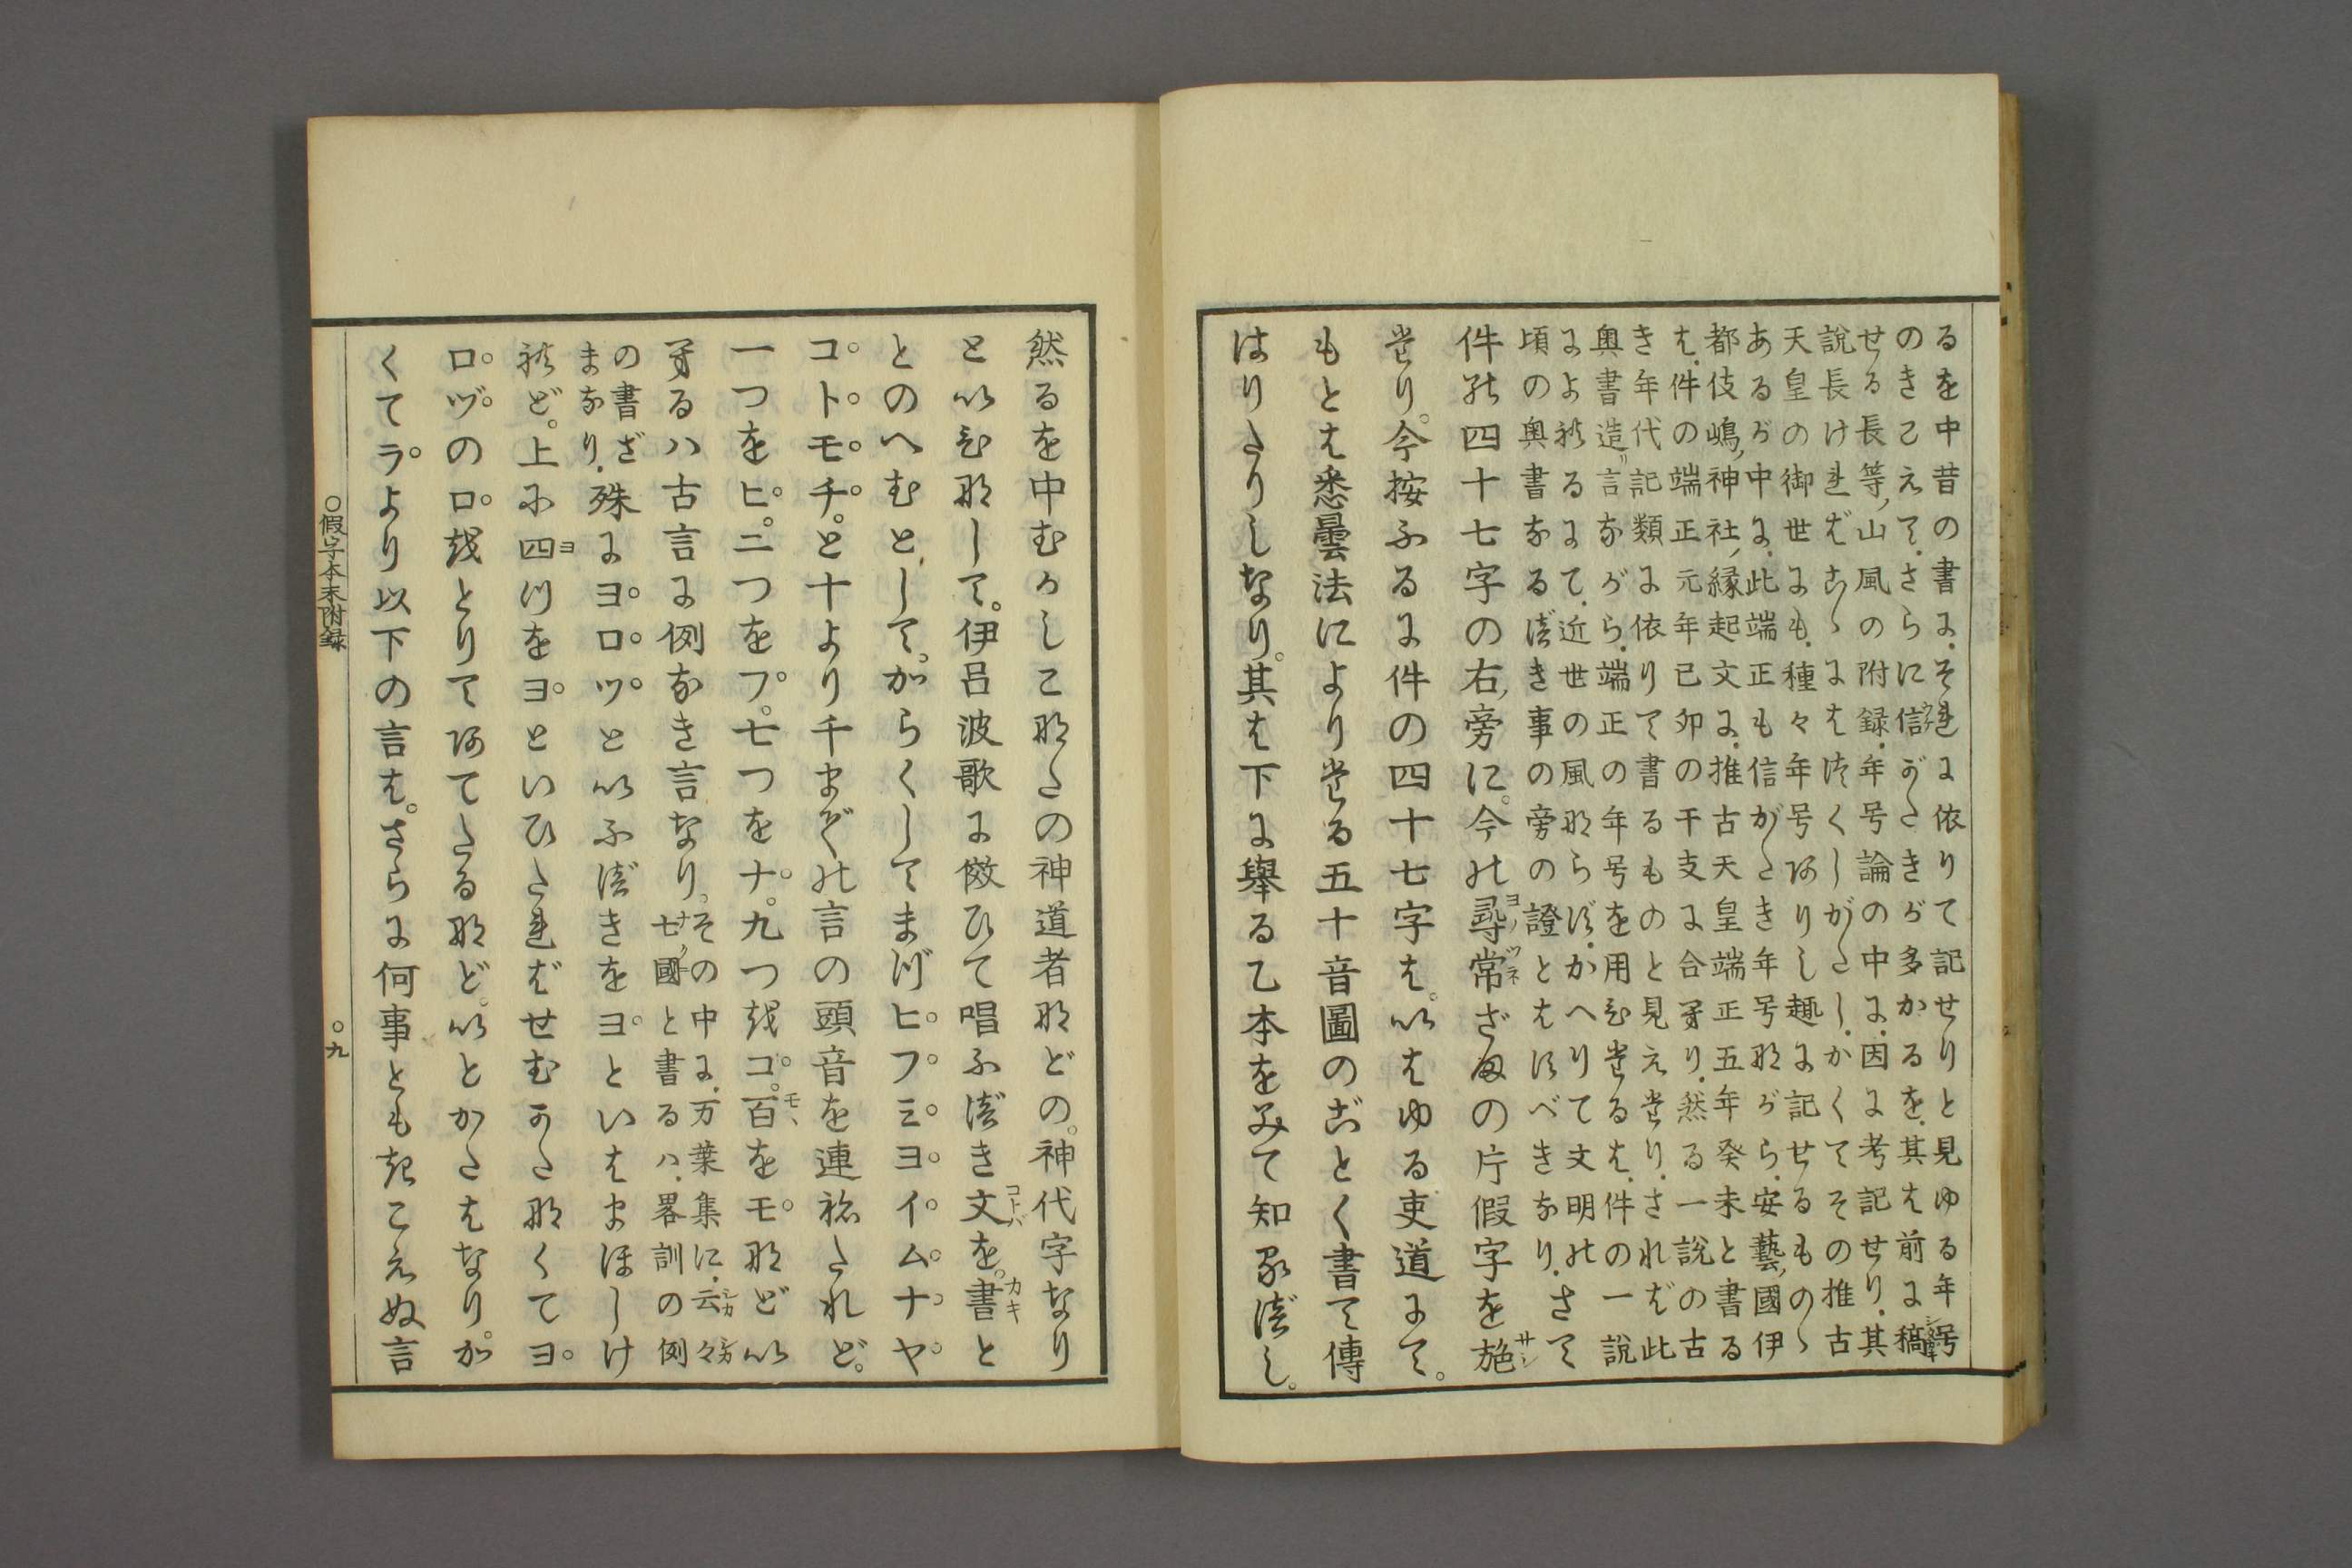 るを中昔の書に.それに依りて記せりと見ゆる年号
のきこえて.さらに信がたきが多かるを.其は前に稿
せる長等山風の附録.年号論の中に.因に考記せり.其
説長ければこゝにはつくしがたし.かくてその推古
天皇の御世にも.種々年号ありし趣に記せるものゝ
あるが中に.此端正も信がたき年号ながら.安藝國伊
都伎嶋神社縁起文に.推古天皇端正五年癸未と書る
は.件の端正元年己卯の干支に合へり.然る一説の古
き年代記類に依りて書るものと見えたり.されば此
奥書造言ながら.端正の年号を用ひたるは.件の一説
によれるにて.近世の風ならず.かへりて文明の
頃の奥書なるべき事の旁の證とはすべきなり.さて
件の四十七字の右旁に。今の尋常ざまの片假字を施
たり。今按ふるに件の四十七字は。いはゆる吏道にて。
もとは悉曇法によりたる五十音圖のごとく書て傳
はりたりしなり。其は下に擧る乙本をみて知るべし。
然るを中むかしこなたの神道者などの。神代字なり
といひなして。伊呂波歌に傚ひて唱ふべき文を。書と
とのへむとして。からくしてまづヒフミヨイムナヤ
コトモチ。と十より千までの言の頭音を連ねたれど。
一つをヒ。二つをフ。七つをナ。九つをコ。百をモなどい
へるハ古言に例なき言なり。その中に.万葉集に.云々
七國と書るハ.畧訓の例
の書ざ
まなり.殊にヨロヅといふべきをヨといはまほしけ
れど。上に四つをヨといひたればせむかたなくてヨ
ロヅのロをとりてあてたるなど。いとかたはなり。か
くてラより以下の言は。さらに何事ともきこえぬ言
○假字本末附録
○九